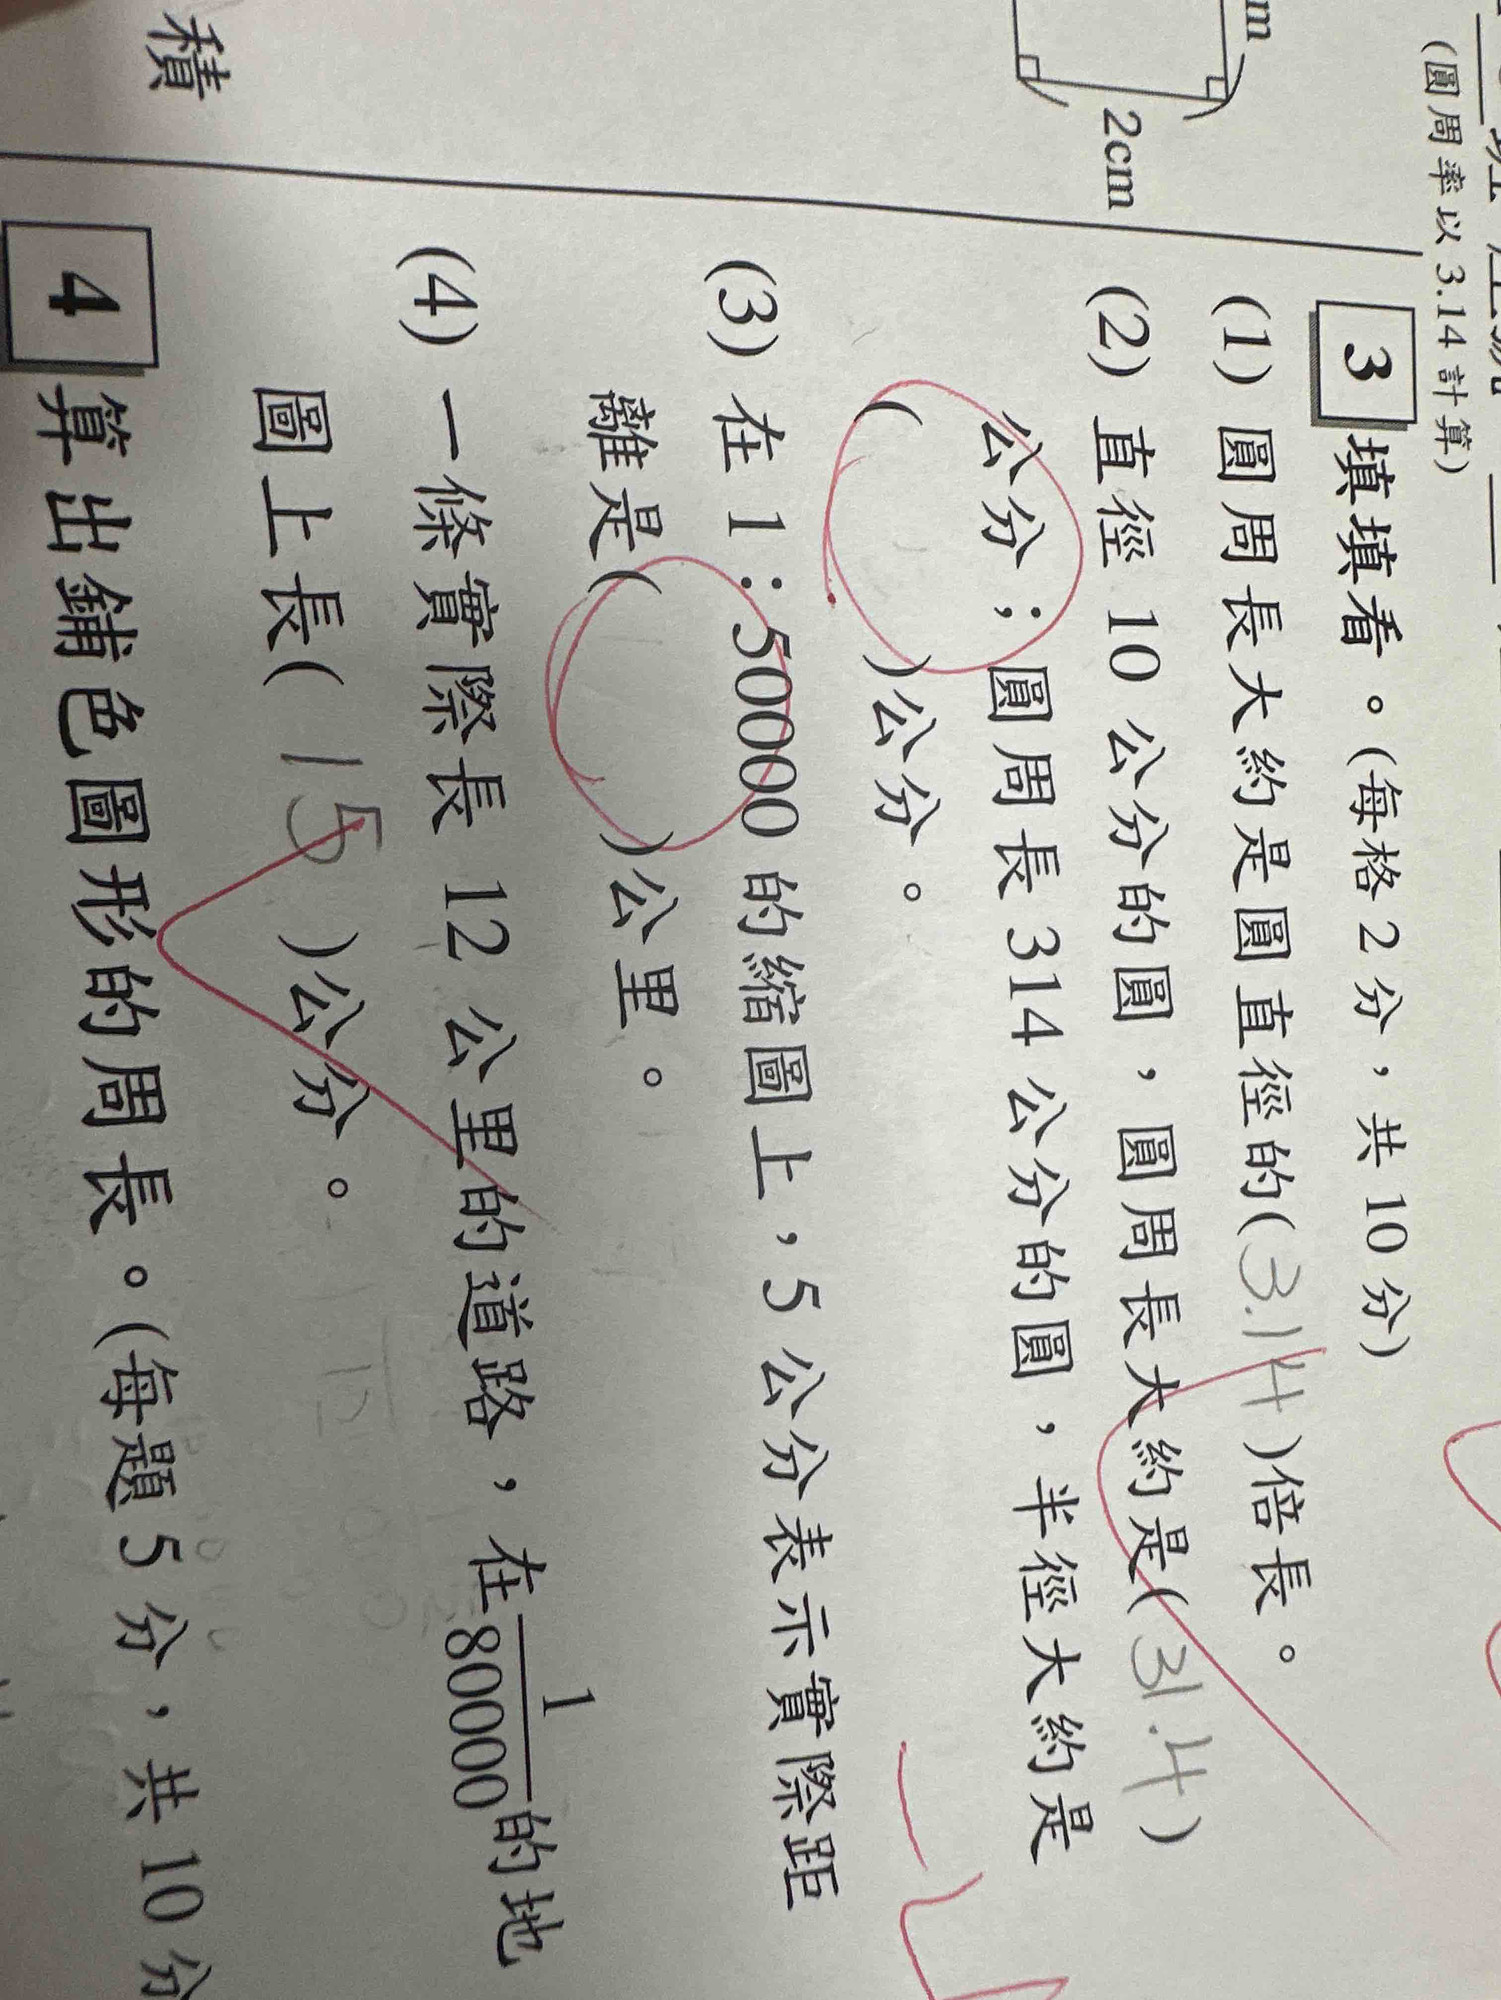 (圓周率以 3.14 計算)
2cm
積
3 填填看。(每格 2 分，共 10 分)
(1) 圓周長大約是圓直徑的( 3.14 )倍長。
(2) 直徑 10 公分的圓，圓周長大約是( 31.4 )
公分；圓周長 314 公分的圓，半徑大約是
( )公分。
(3) 在 1：50000 的縮圖上，5 公分表示實際距
離是( )公里。
(4) 一條實際長 12 公里的道路，在 1/80000 的地
圖上長( 15 )公分。
4 算出鋪色圖形的周長。(每題 5 分，共 10 分